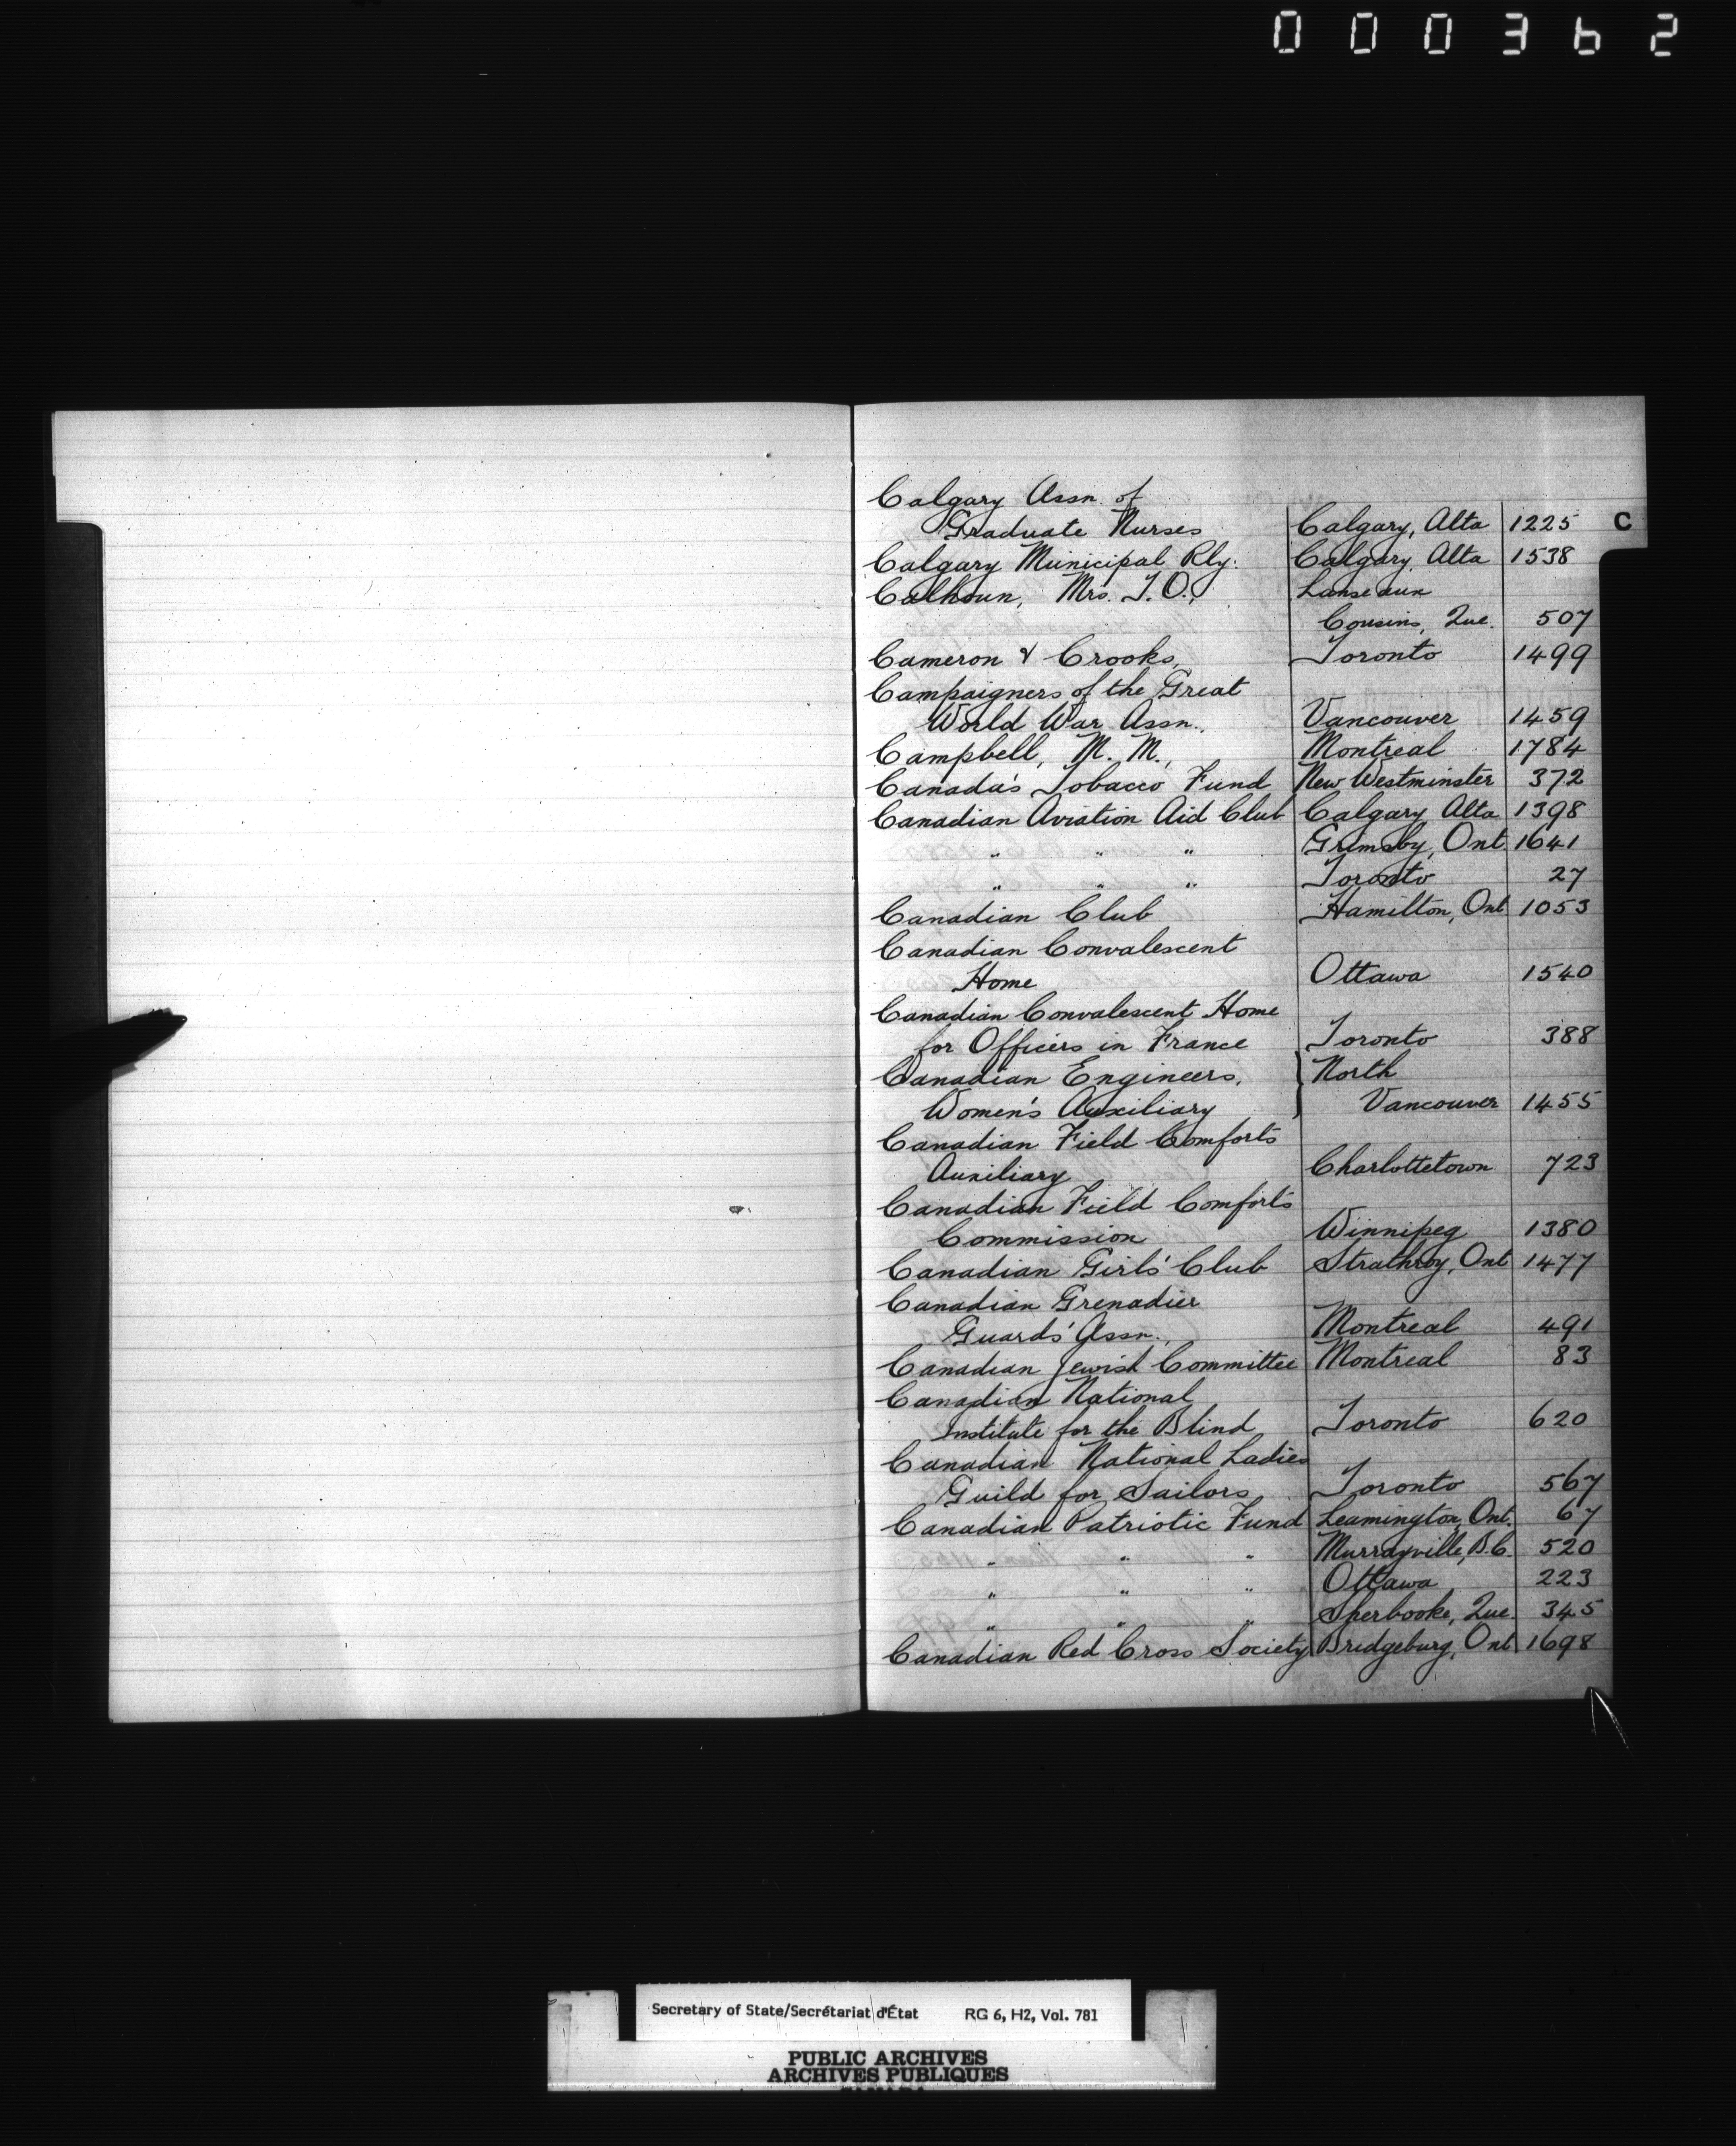 000362
Calgary Assn. of
Graduate Nurses Calgary, Alta 1225 C
Calgary Municipal Rly. Calgary, Alta 1538
Calhoun, Mrs. J. O., Lanse aux
Cousins, Que. 507
Cameron & Crooks, Toronto 1499
Campaigners of the Great
World War Assn. Vancouver 1459
Campbell, M. M., Montreal 1784
Canada's Tobacco Fund New Westminster 372
Canadian Aviation Aid Club Calgary Alta 1398
" " " Grimsby, Ont. 1641
" " " Toronto 27
Canadian Club Hamilton, Ont 1053
Canadian Convalescent
Home Ottawa 1540
Canadian Convalescent Home
for Officers in France Toronto 388
Canadian Engineers, } North
Women's Auxiliary Vancouver 1455
Canadian Field Comforts
Auxiliary Charlottetown 723
Canadian Field Comforts
Commission Winnipeg 1380
Canadian Girls' Club Strathroy, Ont 1477
Canadian Grenadier
Guards' Assn., Montreal 491
Canadian Jewish Committee Montreal 83
Canadian National
Institute for the Blind Toronto 620
Canadian National Ladies
Guild for Sailors Toronto 567
Canadian Patriotic Fund Leamington, Ont. 67
" " " Murrayville, B.C. 520
" " " Ottawa 223
" " " Sherbooke, Que. 345
Canadian Red Cross Society Bridgeburg, Ont 1698
Secretary of State/Secrétariat d'État RG 6, H2, Vol. 781
PUBLIC ARCHIVES
ARCHIVES PUBLIQUES